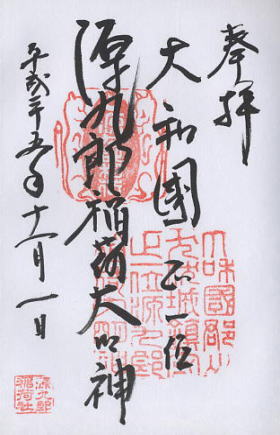 奉拝
大和國 正一位
源九郎稲荷大明神
平成二十五年十一月一日
大和國郡山
源九郎
稲荷社